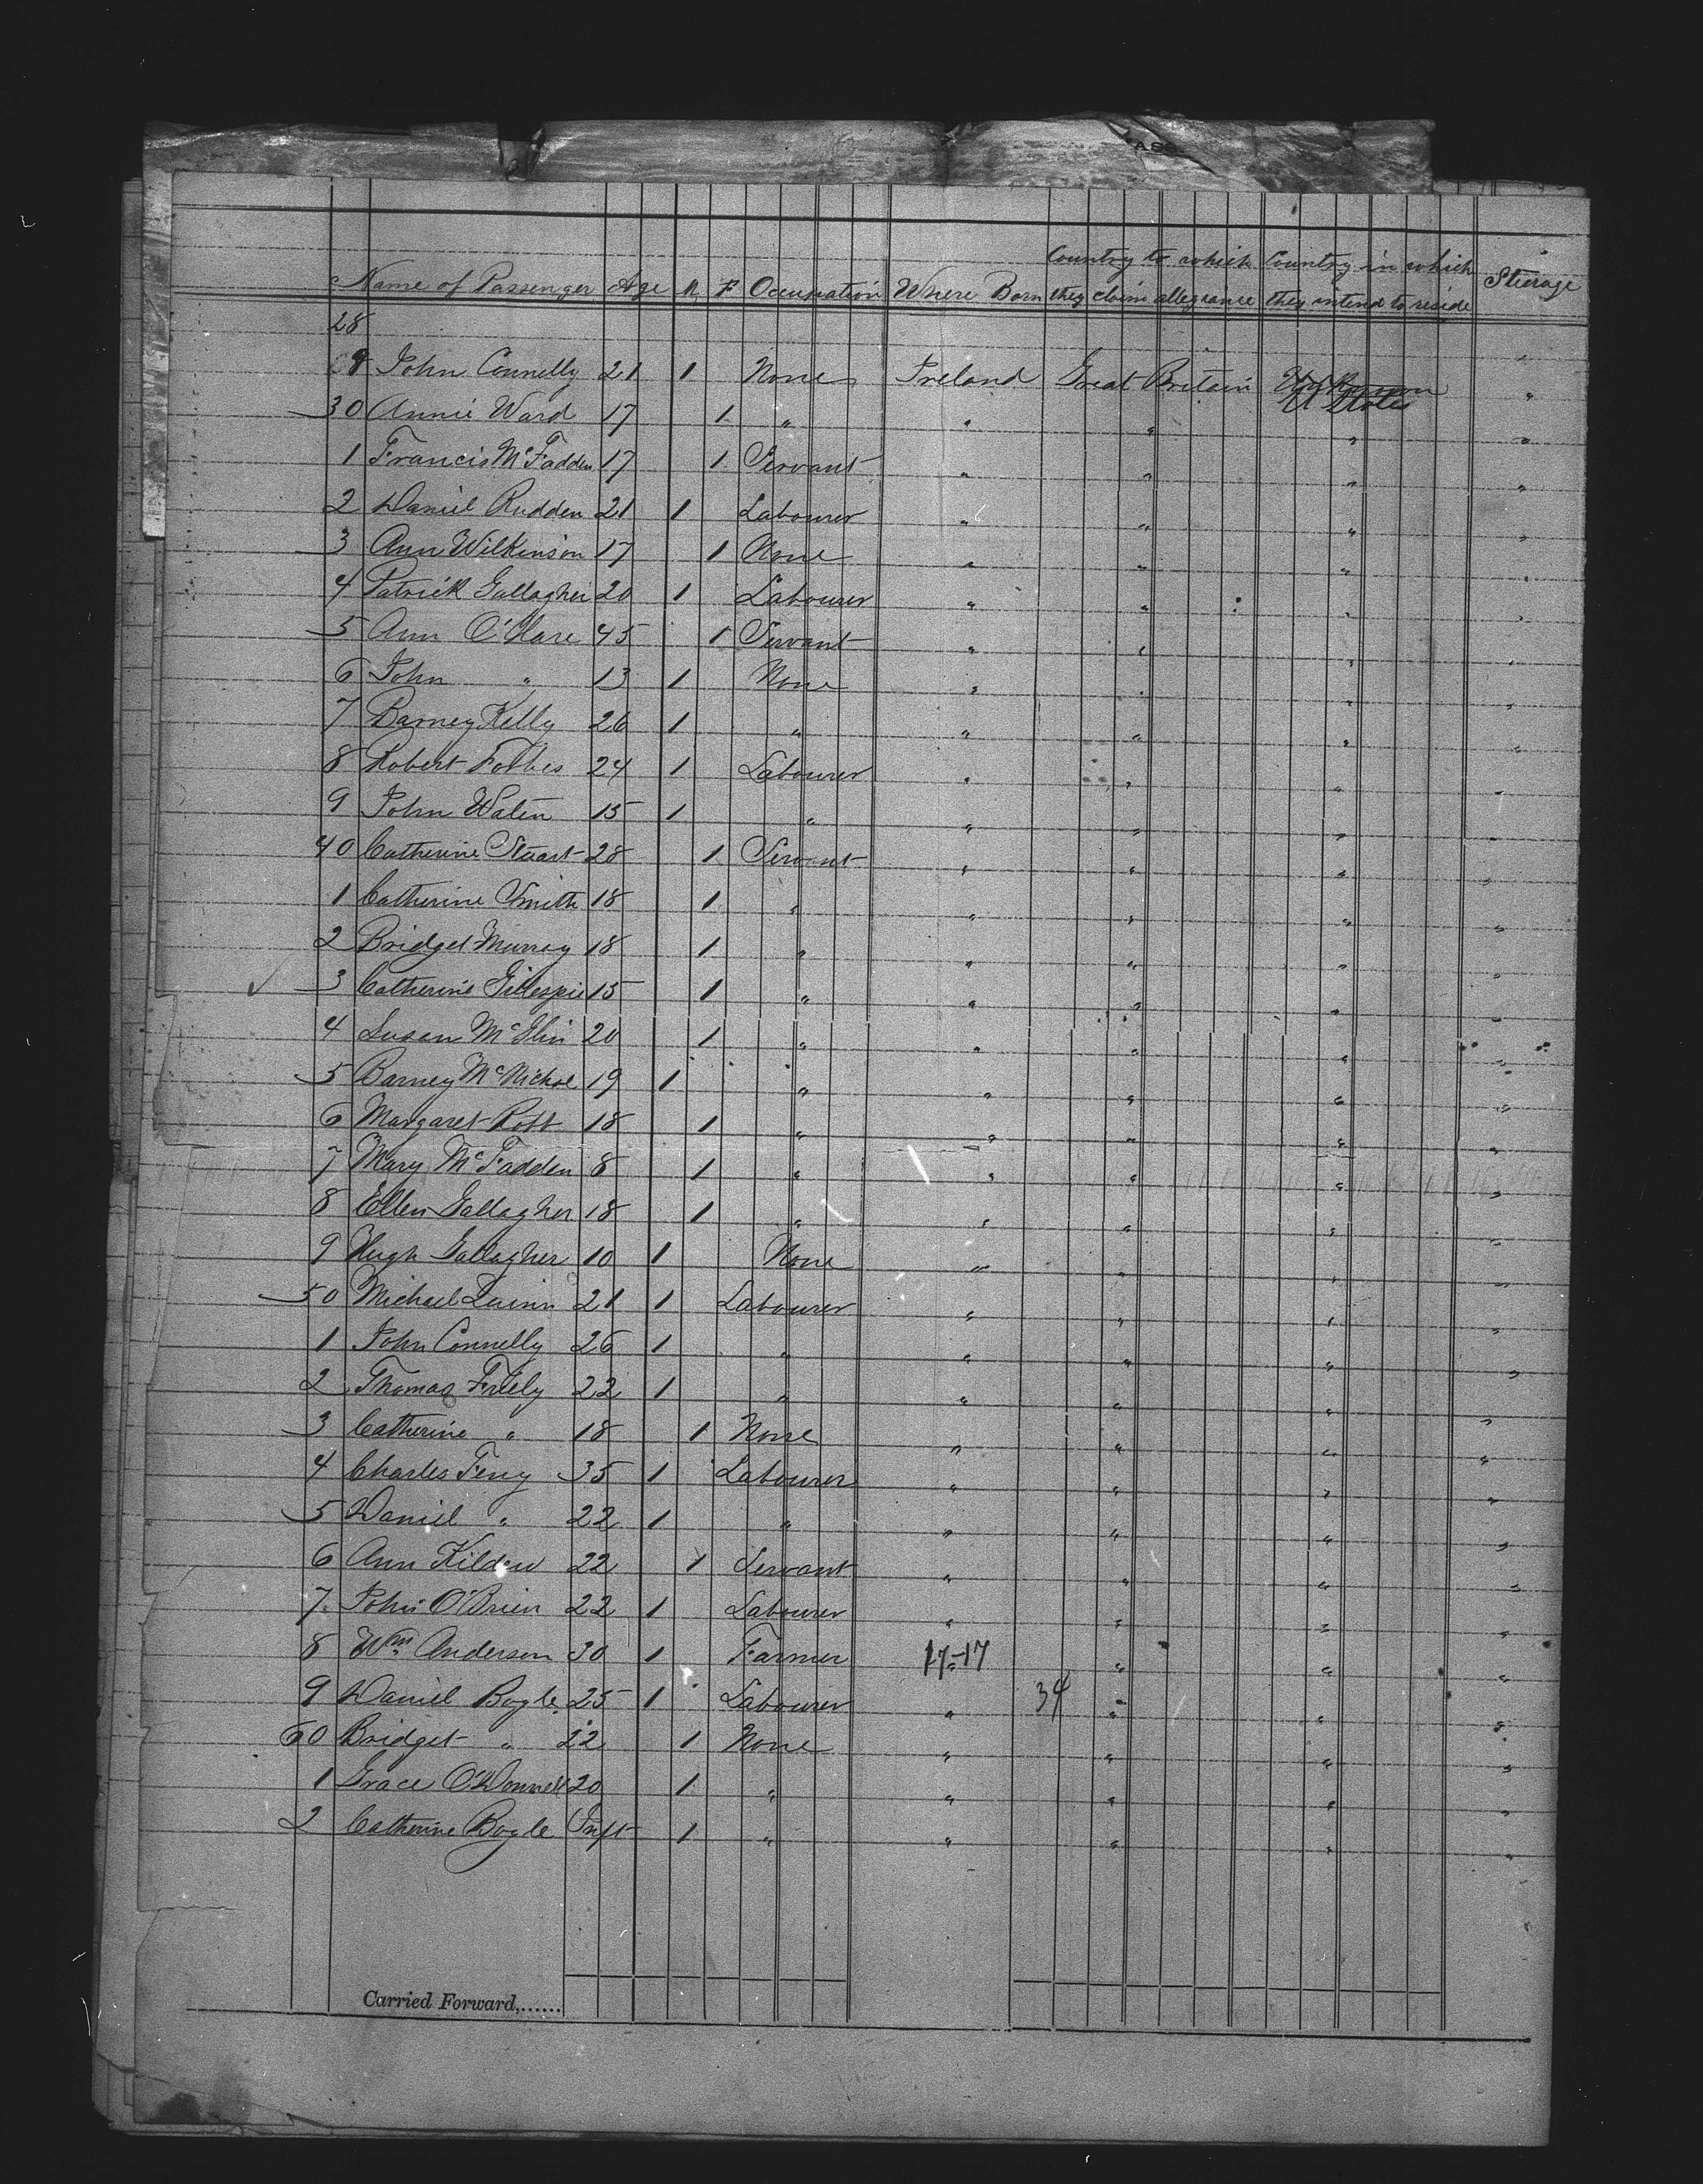 ASS
Country to which Country in which
Name of Passenger Age M F Occupation Where Born they claim allegiance they intend to reside Steerage
28 "
9 John Connelly 21 1 None Ireland Great Britain U States "
30 Annie Ward 17 1 " " " " "
1 Francis McFadden 17 1 Servant " " " "
2 Daniel Rudden 21 1 Labourer " " " "
3 Ann Wilkinson 17 1 None " " " "
4 Patrick Gallagher 20 1 Labourer " " " "
5 Ann O'Hare 45 1 Servant " " " "
6 John " 13 1 None " " " "
7 Barney Kelly 26 1 " " " " "
8 Robert Forbes 24 1 Labourer " " " "
9 John 15 1 " " " " "
40 Catherine Stuart 28 1 Servant " " " "
1 Catherine Smith 18 1 " " " " "
2 Bridget Murray 18 1 " " " " "
3 Catherine Gillespie 15 1 " " " " "
4 Susan McGlin 20 1 " " " " "
5 Barney McNichol 19 1 " " " " "
6 Margaret 18 1 " " " " "
7 Mary McFadden 8 1 " " " " "
8 Ellen Gallagher 18 1 " " " " "
9 Hugh Gallagher 10 1 None " " " "
50 Michael Quinn 21 1 Labourer " " " "
1 John Connelly 26 1 " " " " "
2 Thomas 22 1 " " " " "
3 Catherine " 18 1 None " " " "
4 Charles Ferry 35 1 Labourer " " " "
5 Daniel " 22 1 " " " " "
6 Ann 22 1 Servant " " " "
7 John O'Brien 22 1 Labourer " " " "
8 Wm Anderson 30 1 Farmer 17-17 " " " "
9 Daniel Bogle 25 1 Labourer " 34 " " "
60 Bridget " 22 1 None " " " "
1 Grace O'Donnell 20 1 " " " " "
2 Catherine Bogle Inft 1 " " " " "
Carried Forward,......